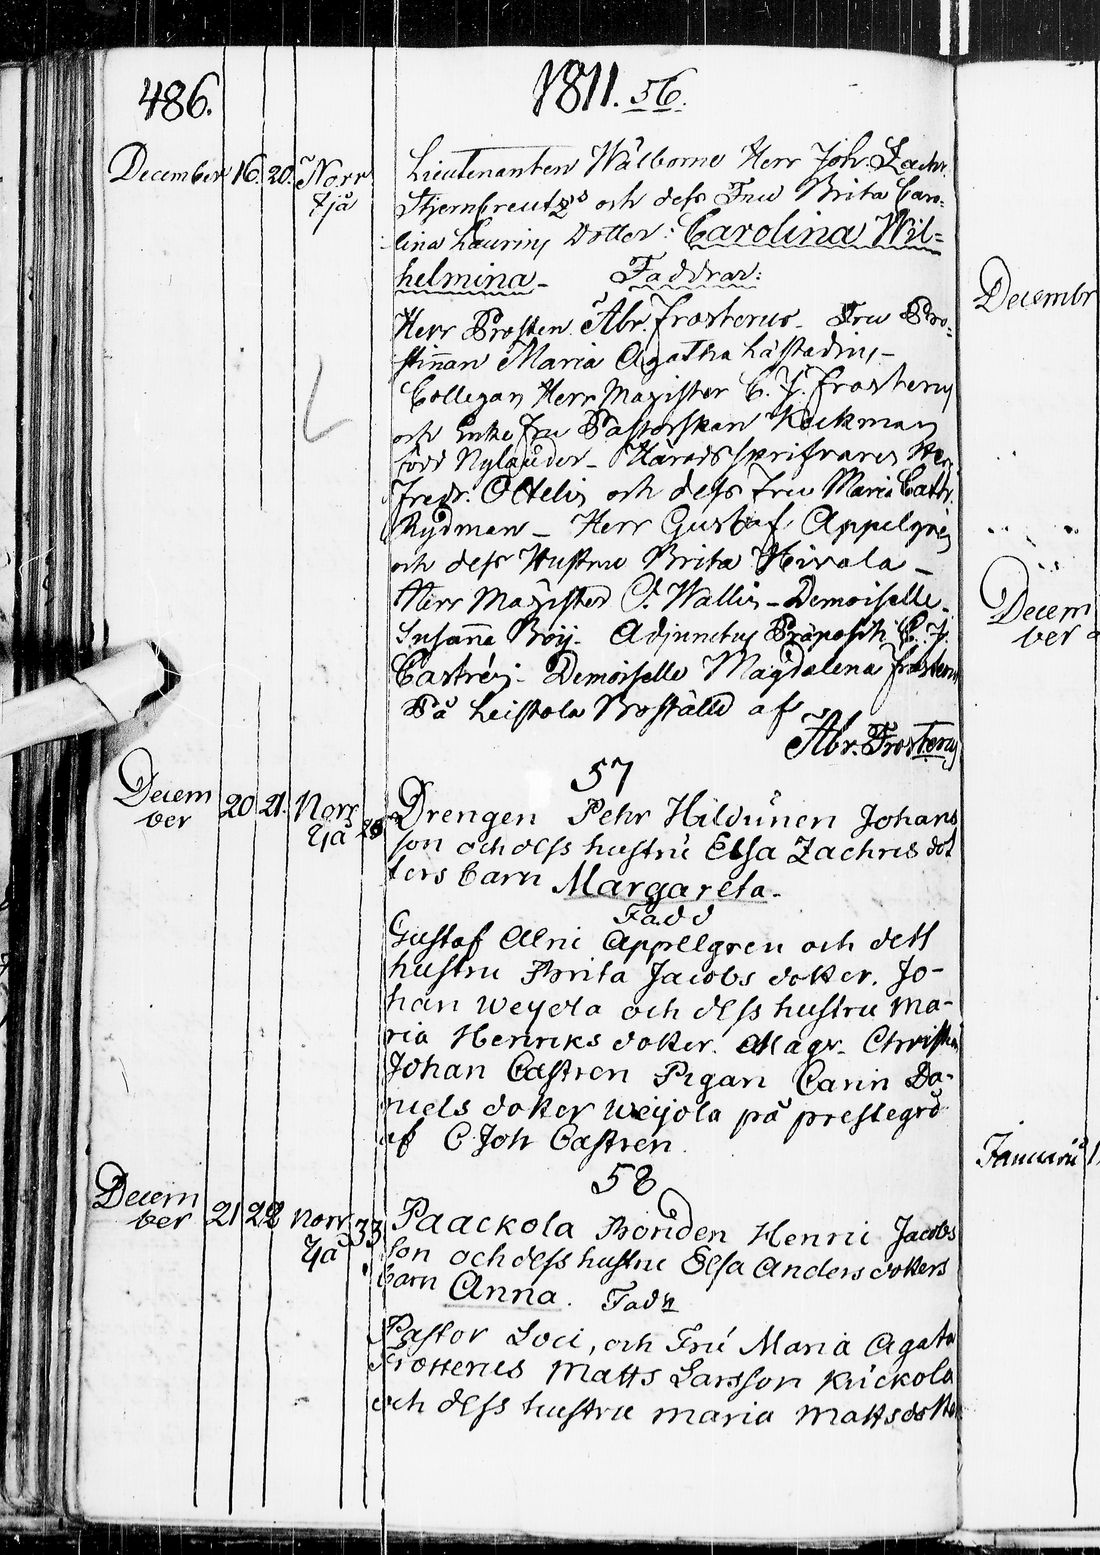 486.
1811. 56.
December 16. 20. Norr
tjå
Lieutenanten Wälborne Herr Joh. Zachr.
Stjerncreutz's och dess Fru Brita Caro-
lina Laurins Dotter: Carolina Wil-
helmina - Faddrar:
Herr Prosten Abr. Frosterus - Fru Pro-
stinnan Maria Agatha Læstadius -
Collegan Herr Magister C. J. Frosterus
och Enke Fru Pastorskan Keckman
född Nylander - Häradsskrifvaren Herr
Fredr. Ottelin och dess Fru Maria Cathr.
Rydman - Herr Gustaf Appelgren
och dess Hustru Brita Heivala -
Herr Magister J. Wallin - Demoiselle
Susanna Böij - Adjunctus C. J.
Castrén - Demoiselle Magdalena Frosterus
På Leistola Boställe af
Abr. Frosterus
57
Decem
ber 20 21. Norr
tjå 28
Drengen Pehr Hildunen Johans
son och dess hustru Elsa Zachris dot
ters barn Margareta -
Fadd
Gustaf Alni Appellgren och dess
hustru Brita Jacobs dotter. Jo-
han Weyola och dess hustru Ma-
ria Henriks dotter. Magr. Christian
Johan Castren Pigan Carin Da-
niels dotter Weijola på prestegrd
af C Joh Castren
58
Decem
ber 21 22 Norr
tjå 33
Paackola Bonden Henric Jacobs
son och dess hustru Elsa Anders dotters
barn Anna. Fadr
Pastor Loci, och Fru Maria Agata
Frosterus Matts Larsson Kuckola
och dess hustru Maria Mattsdotter
Decembr
Decem
ber
Januarii